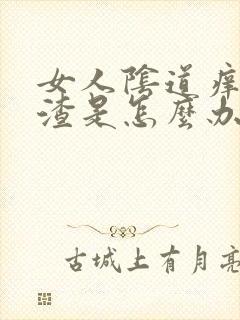 女人陰道痒
渣是怎麼办
古城上有月亮